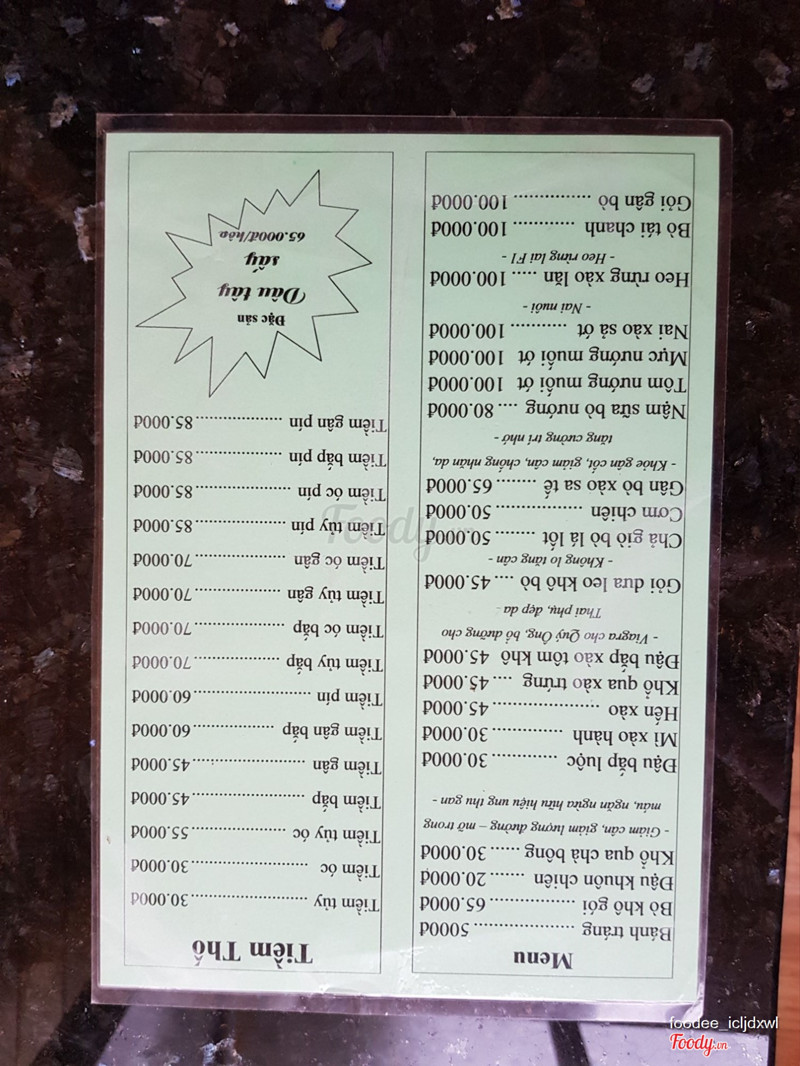 Menu
Bánh tráng .................. 5000đ
Bò khô gói ............... 65.000đ
Đậu khuôn chiên ...... 20.000đ
Khổ qua chà bông ...... 30.000đ
- Giảm cân, giảm lượng đường – mỡ trong
máu, ngăn ngừa hữu hiệu ung thu gan -
Đậu bắp luộc ............ 30.000đ
Mì xào hành ............. 30.000đ
Hến xào ................... 45.000đ
Khổ qua xào trứng .... 45.000đ
Đậu bắp xào tôm khô 45.000đ
- Viagra cho Quý Ông, bổ dưỡng cho
Thai phụ, đẹp da -
Gỏi dưa leo khô bò .... 45.000đ
- Không lo tăng cân -
Chả giò bò lá lốt ........ 50.000đ
Cơm chiên ............... 50.000đ
Gân bò xào sa tế ........ 65.000đ
- Khỏe gân cốt, giảm cân, chống nhăn da,
tăng cường trí nhớ -
Nậm sữa bò nướng .... 80.000đ
Tôm nướng muối ớt 100.000đ
Mực nướng muối ớt 100.000đ
Nai xào sả ớt ............ 100.000đ
- Nai nuôi -
Heo rừng xào lăn ..... 100.000đ
- Heo rừng lai F1 -
Bò tái chanh ............. 100.000đ
Gỏi gân bò ................ 100.000đ
Tiềm Thố
Tiềm tủy ........................ 30.000đ
Tiềm óc ........................ 30.000đ
Tiềm tủy óc .................... 55.000đ
Tiềm bắp ....................... 45.000đ
Tiềm gân ....................... 45.000đ
Tiềm gân bắp ................. 60.000đ
Tiềm pín ........................ 60.000đ
Tiềm tủy bắp ................. 70.000đ
Tiềm óc bắp .................. 70.000đ
Tiềm tủy gân ................. 70.000đ
Tiềm óc gân .................. 70.000đ
Tiềm tủy pín .................. 85.000đ
Tiềm óc pín ................... 85.000đ
Tiềm bắp pín ................. 85.000đ
Tiềm gân pín ................. 85.000đ
Đặc sản
Dâu tây
sấy
65.000đ/hộp
Foody.vn
foodee_icljdxwl
Foody.vn